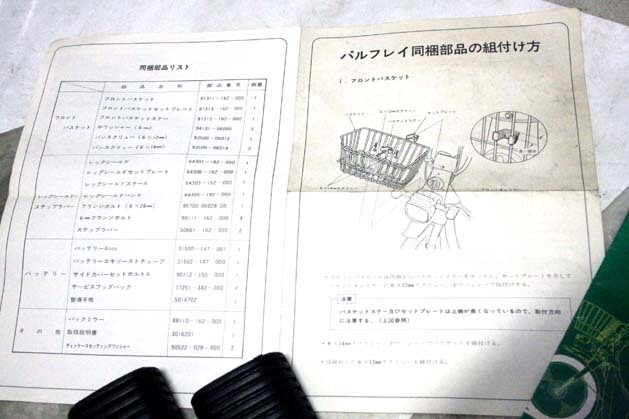 同梱部品リスト
部品名称 部品番号 個数
フロントバスケット
フロントバスケット 81311-162-000 1
フロントバスケットセットプレート 81313-162-000 1
フロントバスケットステー 81312-162-000 1
平ワッシャー(6mm) 94101-06000
パンスクリュー(6×12mm) 93500-06012
パンスクリュー(6×14mm) 93500-06014
レッグシールド・ステップラバー
レッグシールド 64301-162-000
レッグシールドセットプレート 64306-162-000 1
レッグシールドステーA 64303-162-000 1
レッグシールドバンド 64305-162-000 1
フランジボルト(6×28mm) 95700-06028 00 1
6mmフランジボルト 90111-162-000 4
ステップラバー 50661-162-000 2
バッテリー
バッテリーAssy 31500-147-007 1
バッテリーエキゾーストチューブ 31502-147-000 1
サイドカバーセットボルトA 90112-155-000 1
サービスブックバック 77251-342-000 1
整備手帳 5014702 1
その他
バックミラー 88110-162-000 1
取扱説明書 3016201 1
チェンケースセッティングワッシャー 90522-028-000 2
パルフレイ同梱部品の組付け方
1. フロントバスケット
バスケット
6×12mmスクリュー
セットプレート
バスケットステー
6×14mmスクリュー
注意
バスケットステー及びセットプレートは上側が長くなっているので、取付方向
に注意する。(上図参照)
• 6×14mmスクリュー でバスケットを組付ける。
6×12mmスクリューを組付ける。